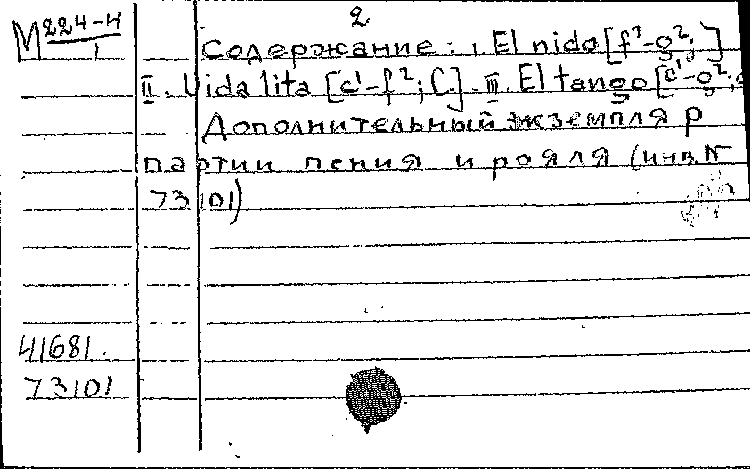 2
М 224-4
1
Содержание: I. El nido [f¹-g²; ]
II. Vidalita [c¹-f²; C]. III. El tango [c¹-g²;
Дополнительный экземпляр
партии пения и рояля (инв. N
73101)
41681.
73101